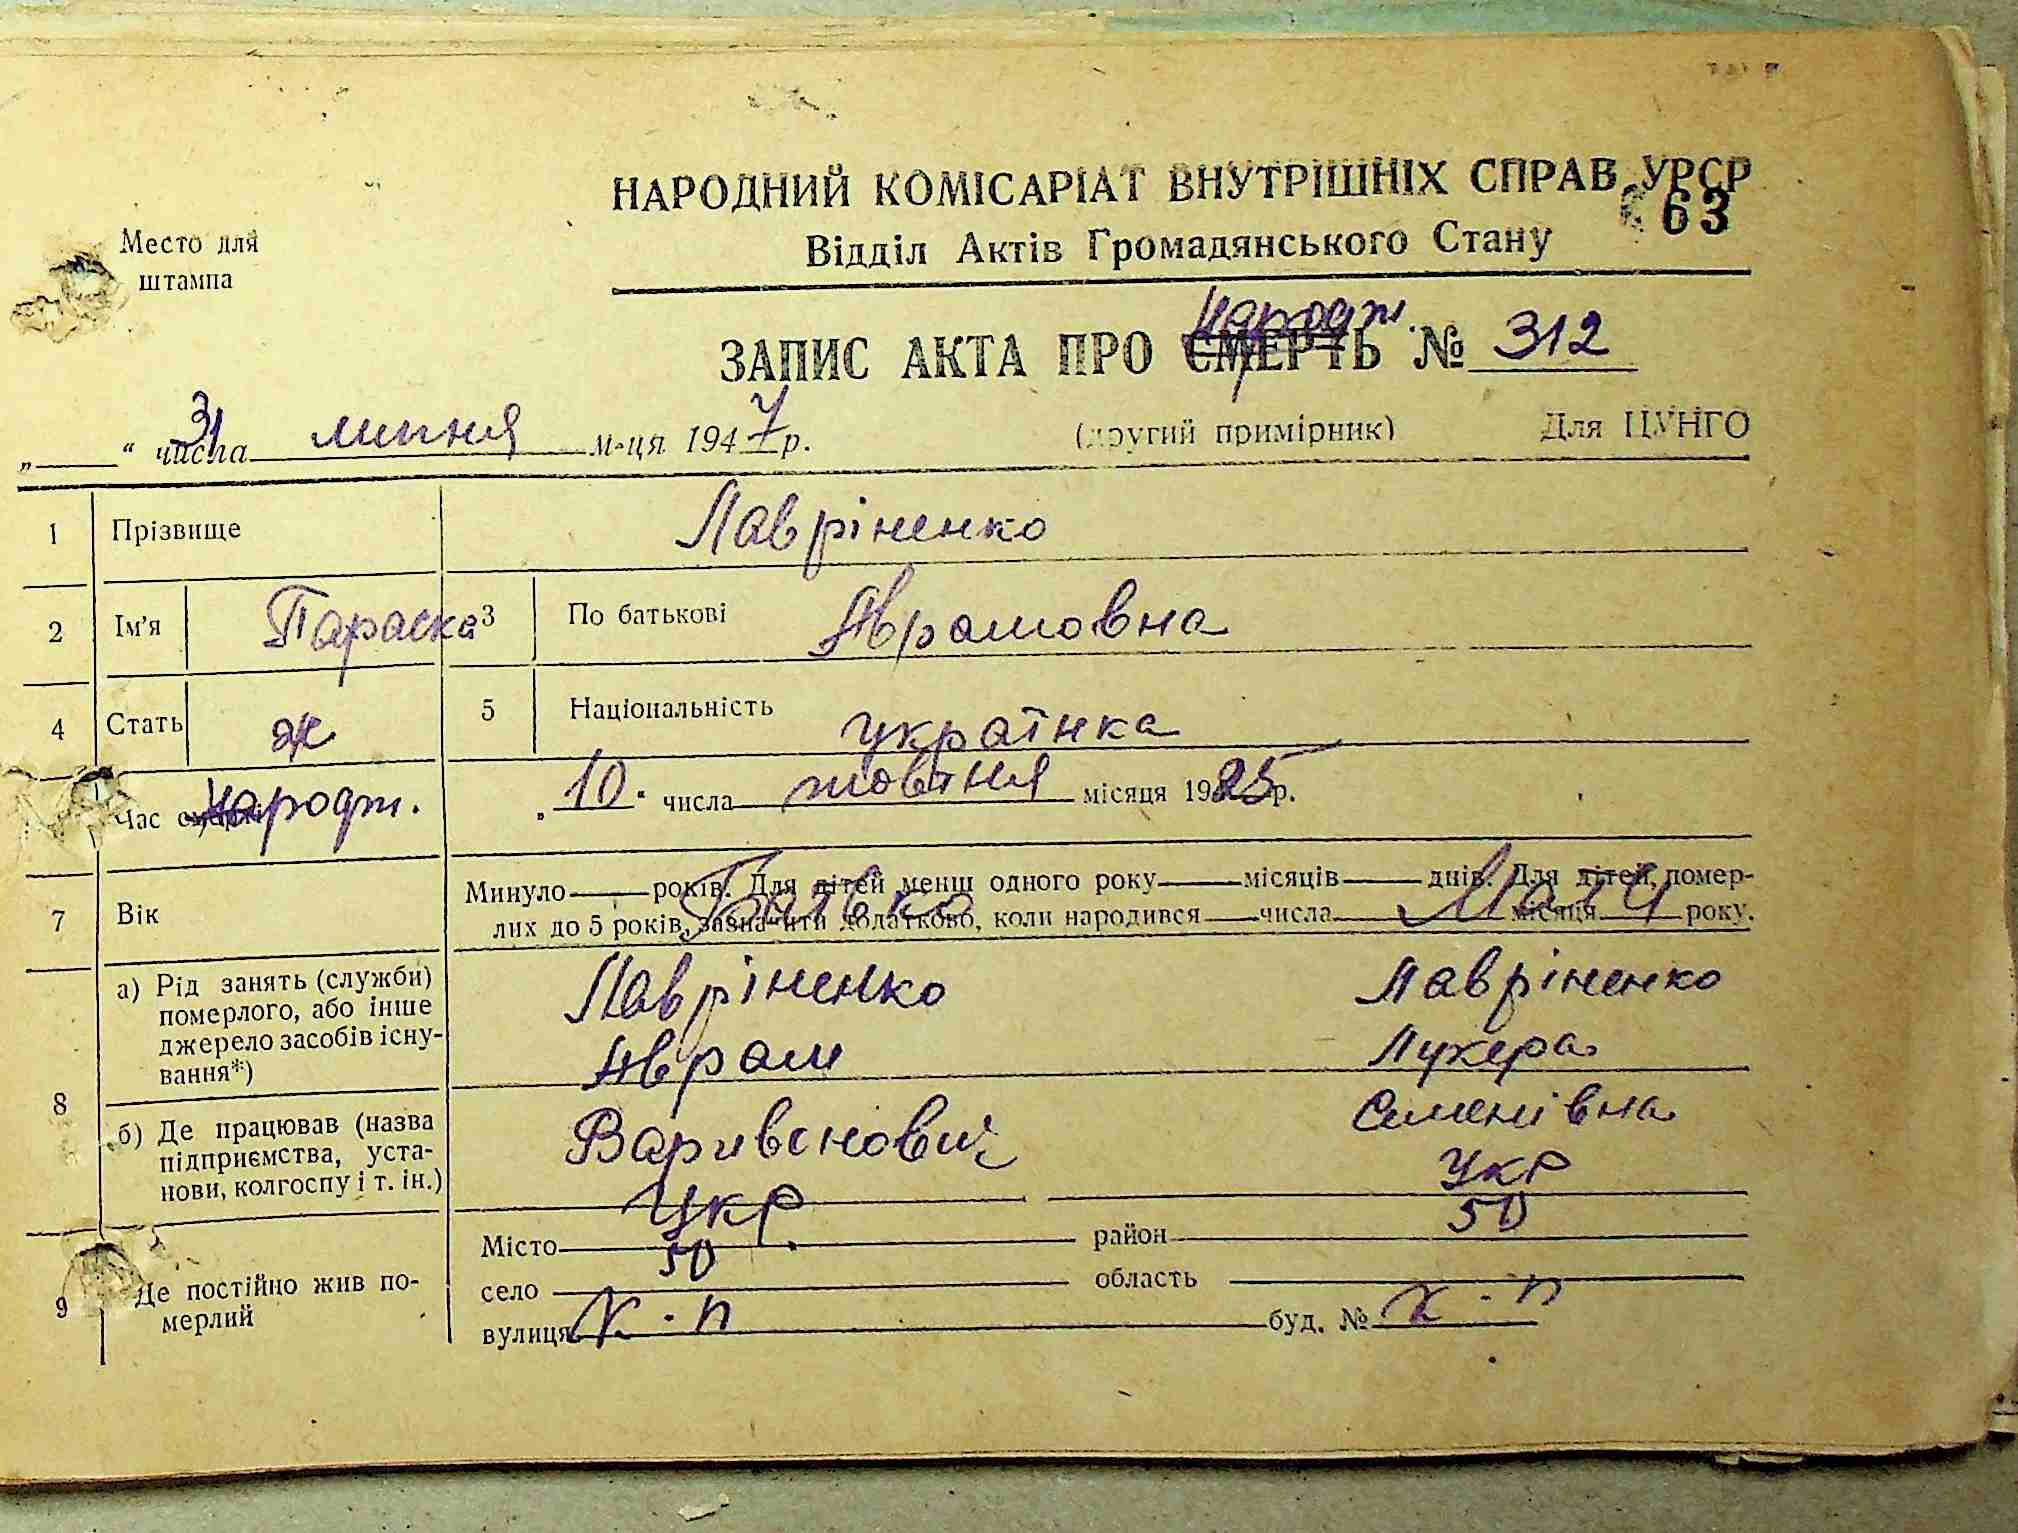 НАРОДНИЙ КОМІСАРІАТ ВНУТРІШНІХ СПРАВ УРСР
63
Место для
штампа
Відділ Актів Громадянського Стану
народж.
ЗАПИС АКТА ПРО СМЕРТЬ № 312
„ “ 31 числа липня м-ця 1947 р.
(другий примірник) Для ЦУНГО
1 Прізвище Лавріненко
2 Ім'я Параска 3 По батькові Аврамовна
4 Стать ж 5 Національність українка
Час народж. „10“ числа жовтня місяця 1925 р.
7 Вік
Минуло року. Для дітей менш одного року місяців днів. Для дітей, помер-
лих до 5 років, зазначити додатково, коли народився числа місяця року.
Батько Мати
8
а) Рід занять (служби)
померлого, або інше
джерело засобів існу-
вання*)
Лавріненко Лавріненко
Аврам Лукера
б) Де працював (назва
підприємства, уста-
нови, колгоспу і т. ін.)
Варивонович Семенівна
Укр Укр
50 50
9 Де постійно жив по-
мерлий
Місто район
село область
вулиця х-п буд. № х-п